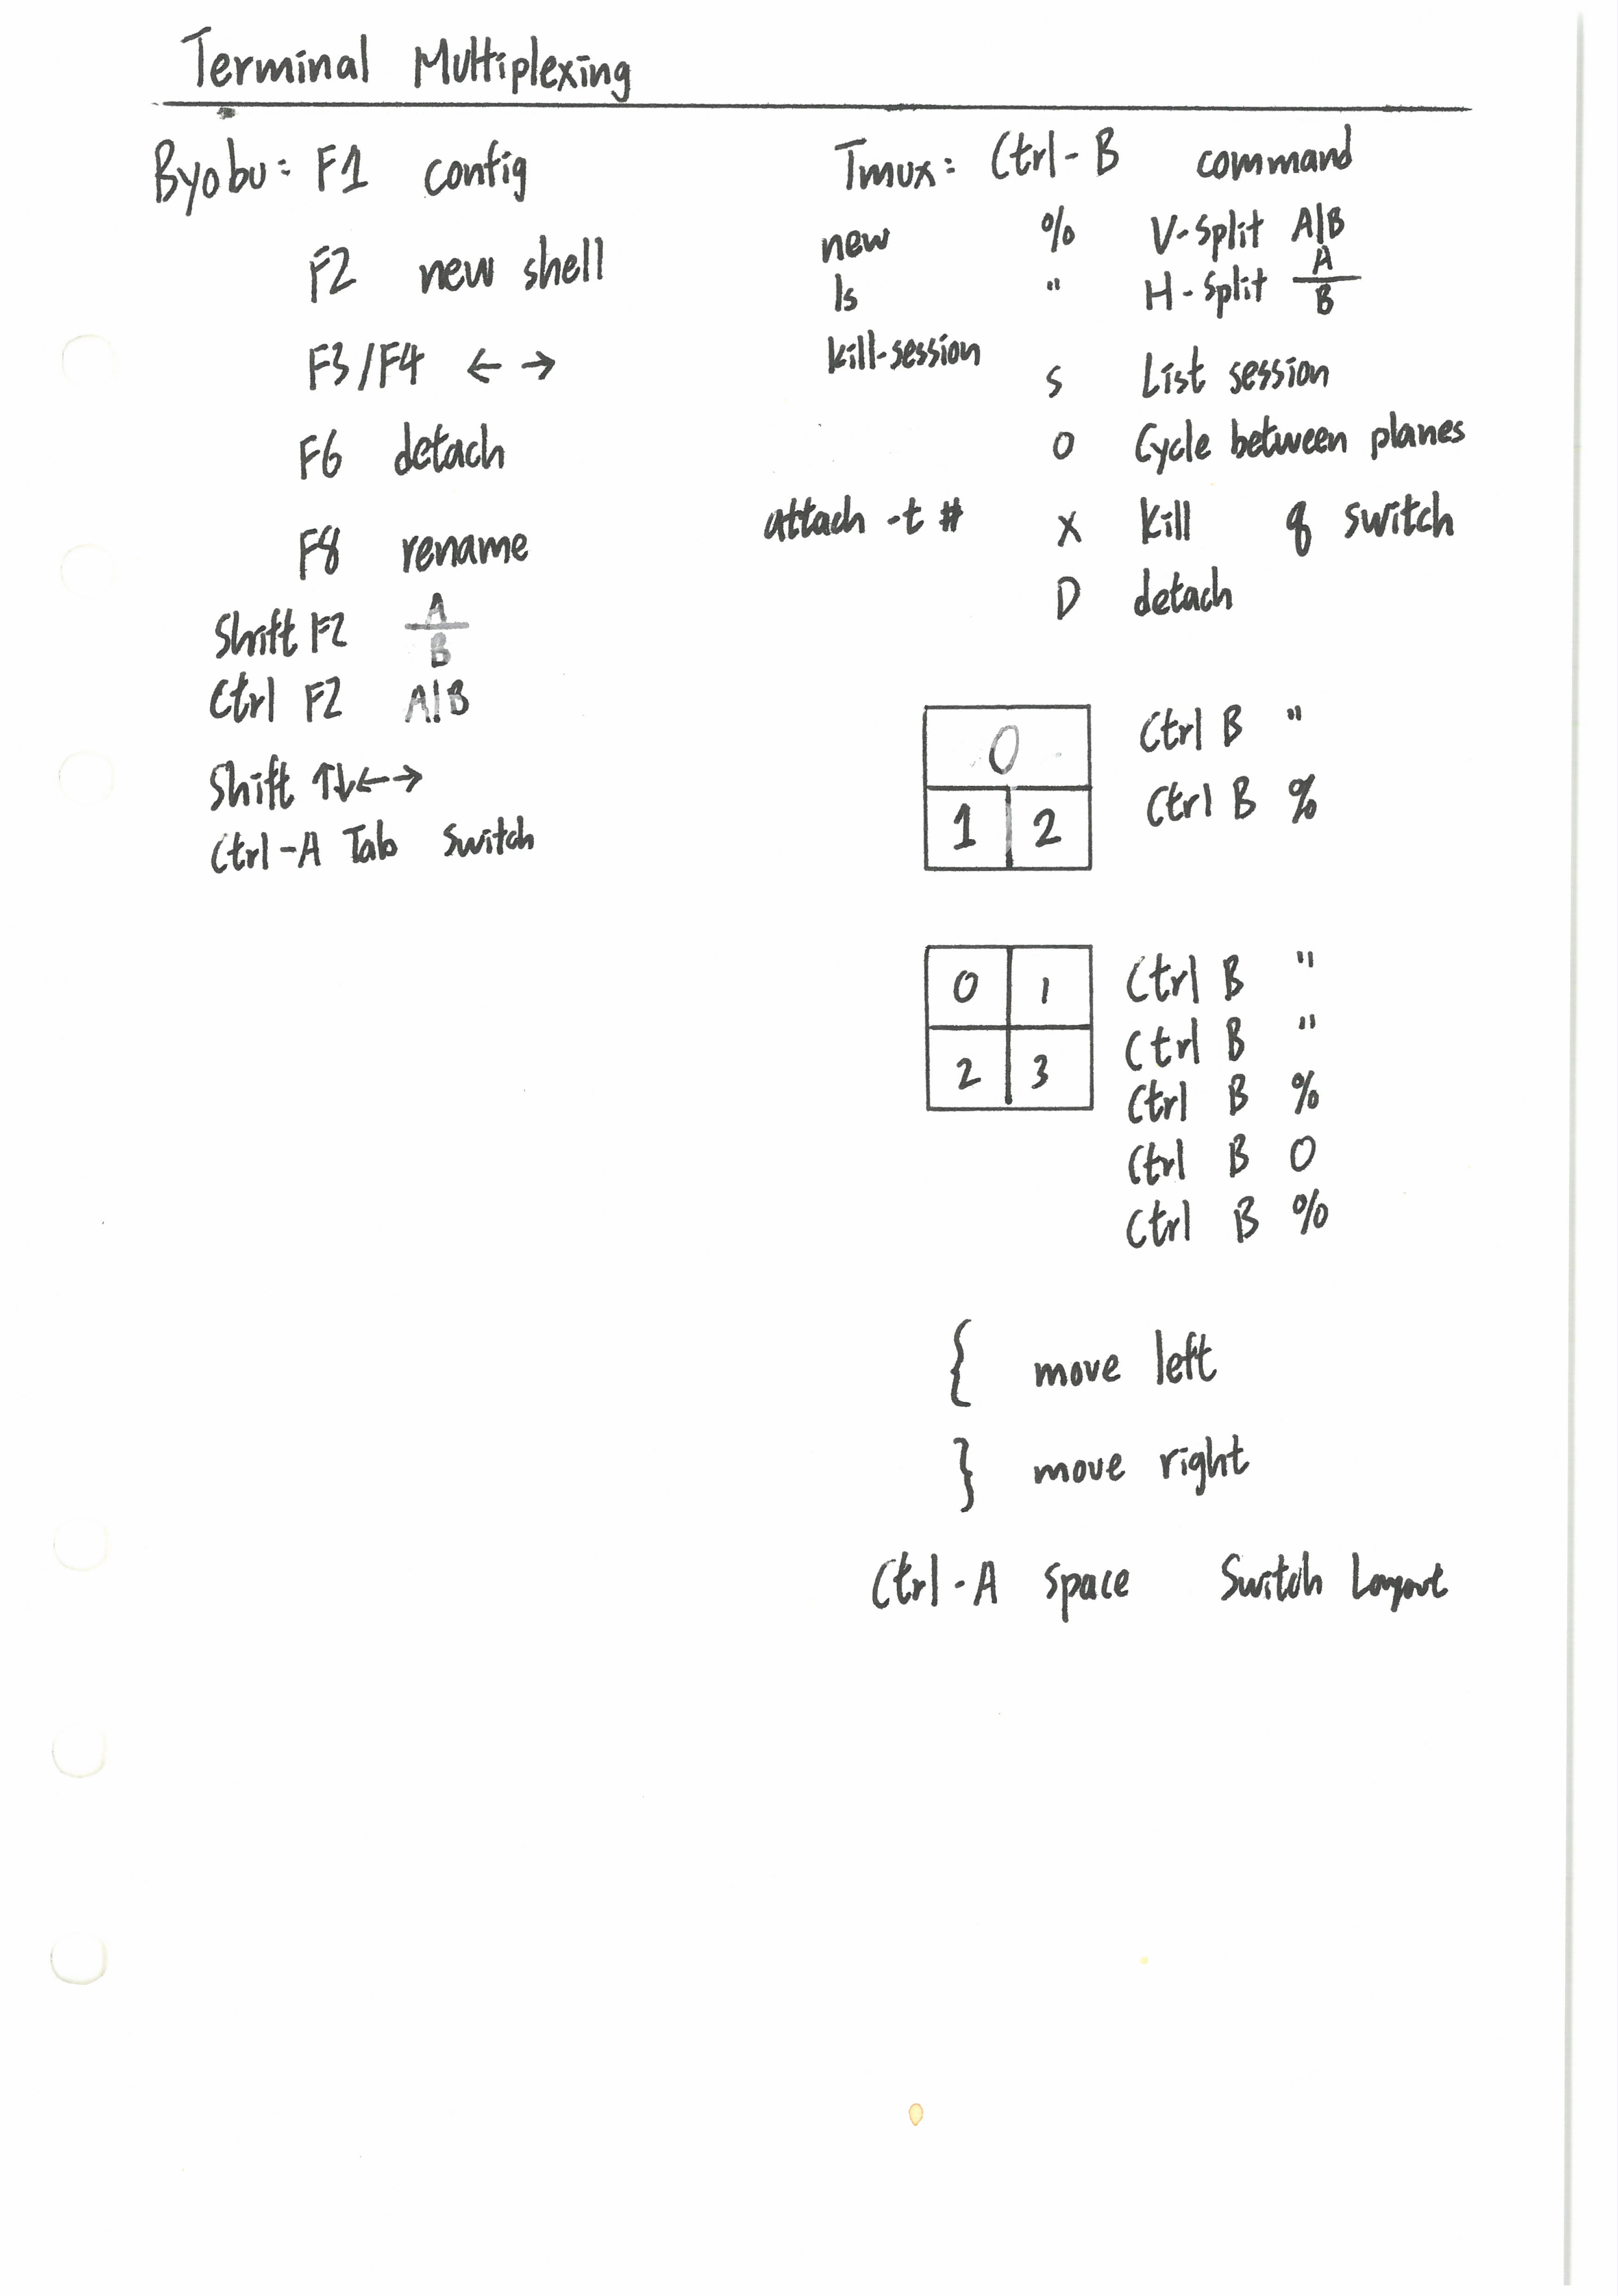 Terminal Multiplexing
Byobu: F1 config
F2 new shell
F3/F4 ← →
F6 detach
F8 rename
Shift F2 A
B
Ctrl F2 A|B
Shift ↑↓←→
Ctrl-A Tab Switch
Tmux: Ctrl-B command
new % V-Split A|B
ls " H-Split A
B
kill-session
s List session
O Cycle between planes
attach -t # X Kill q switch
D detach
0
1 2
Ctrl B "
Ctrl B %
0 1
2 3
Ctrl B "
Ctrl B "
Ctrl B %
Ctrl B O
Ctrl B %
{ move left
} move right
Ctrl-A Space Switch Layout